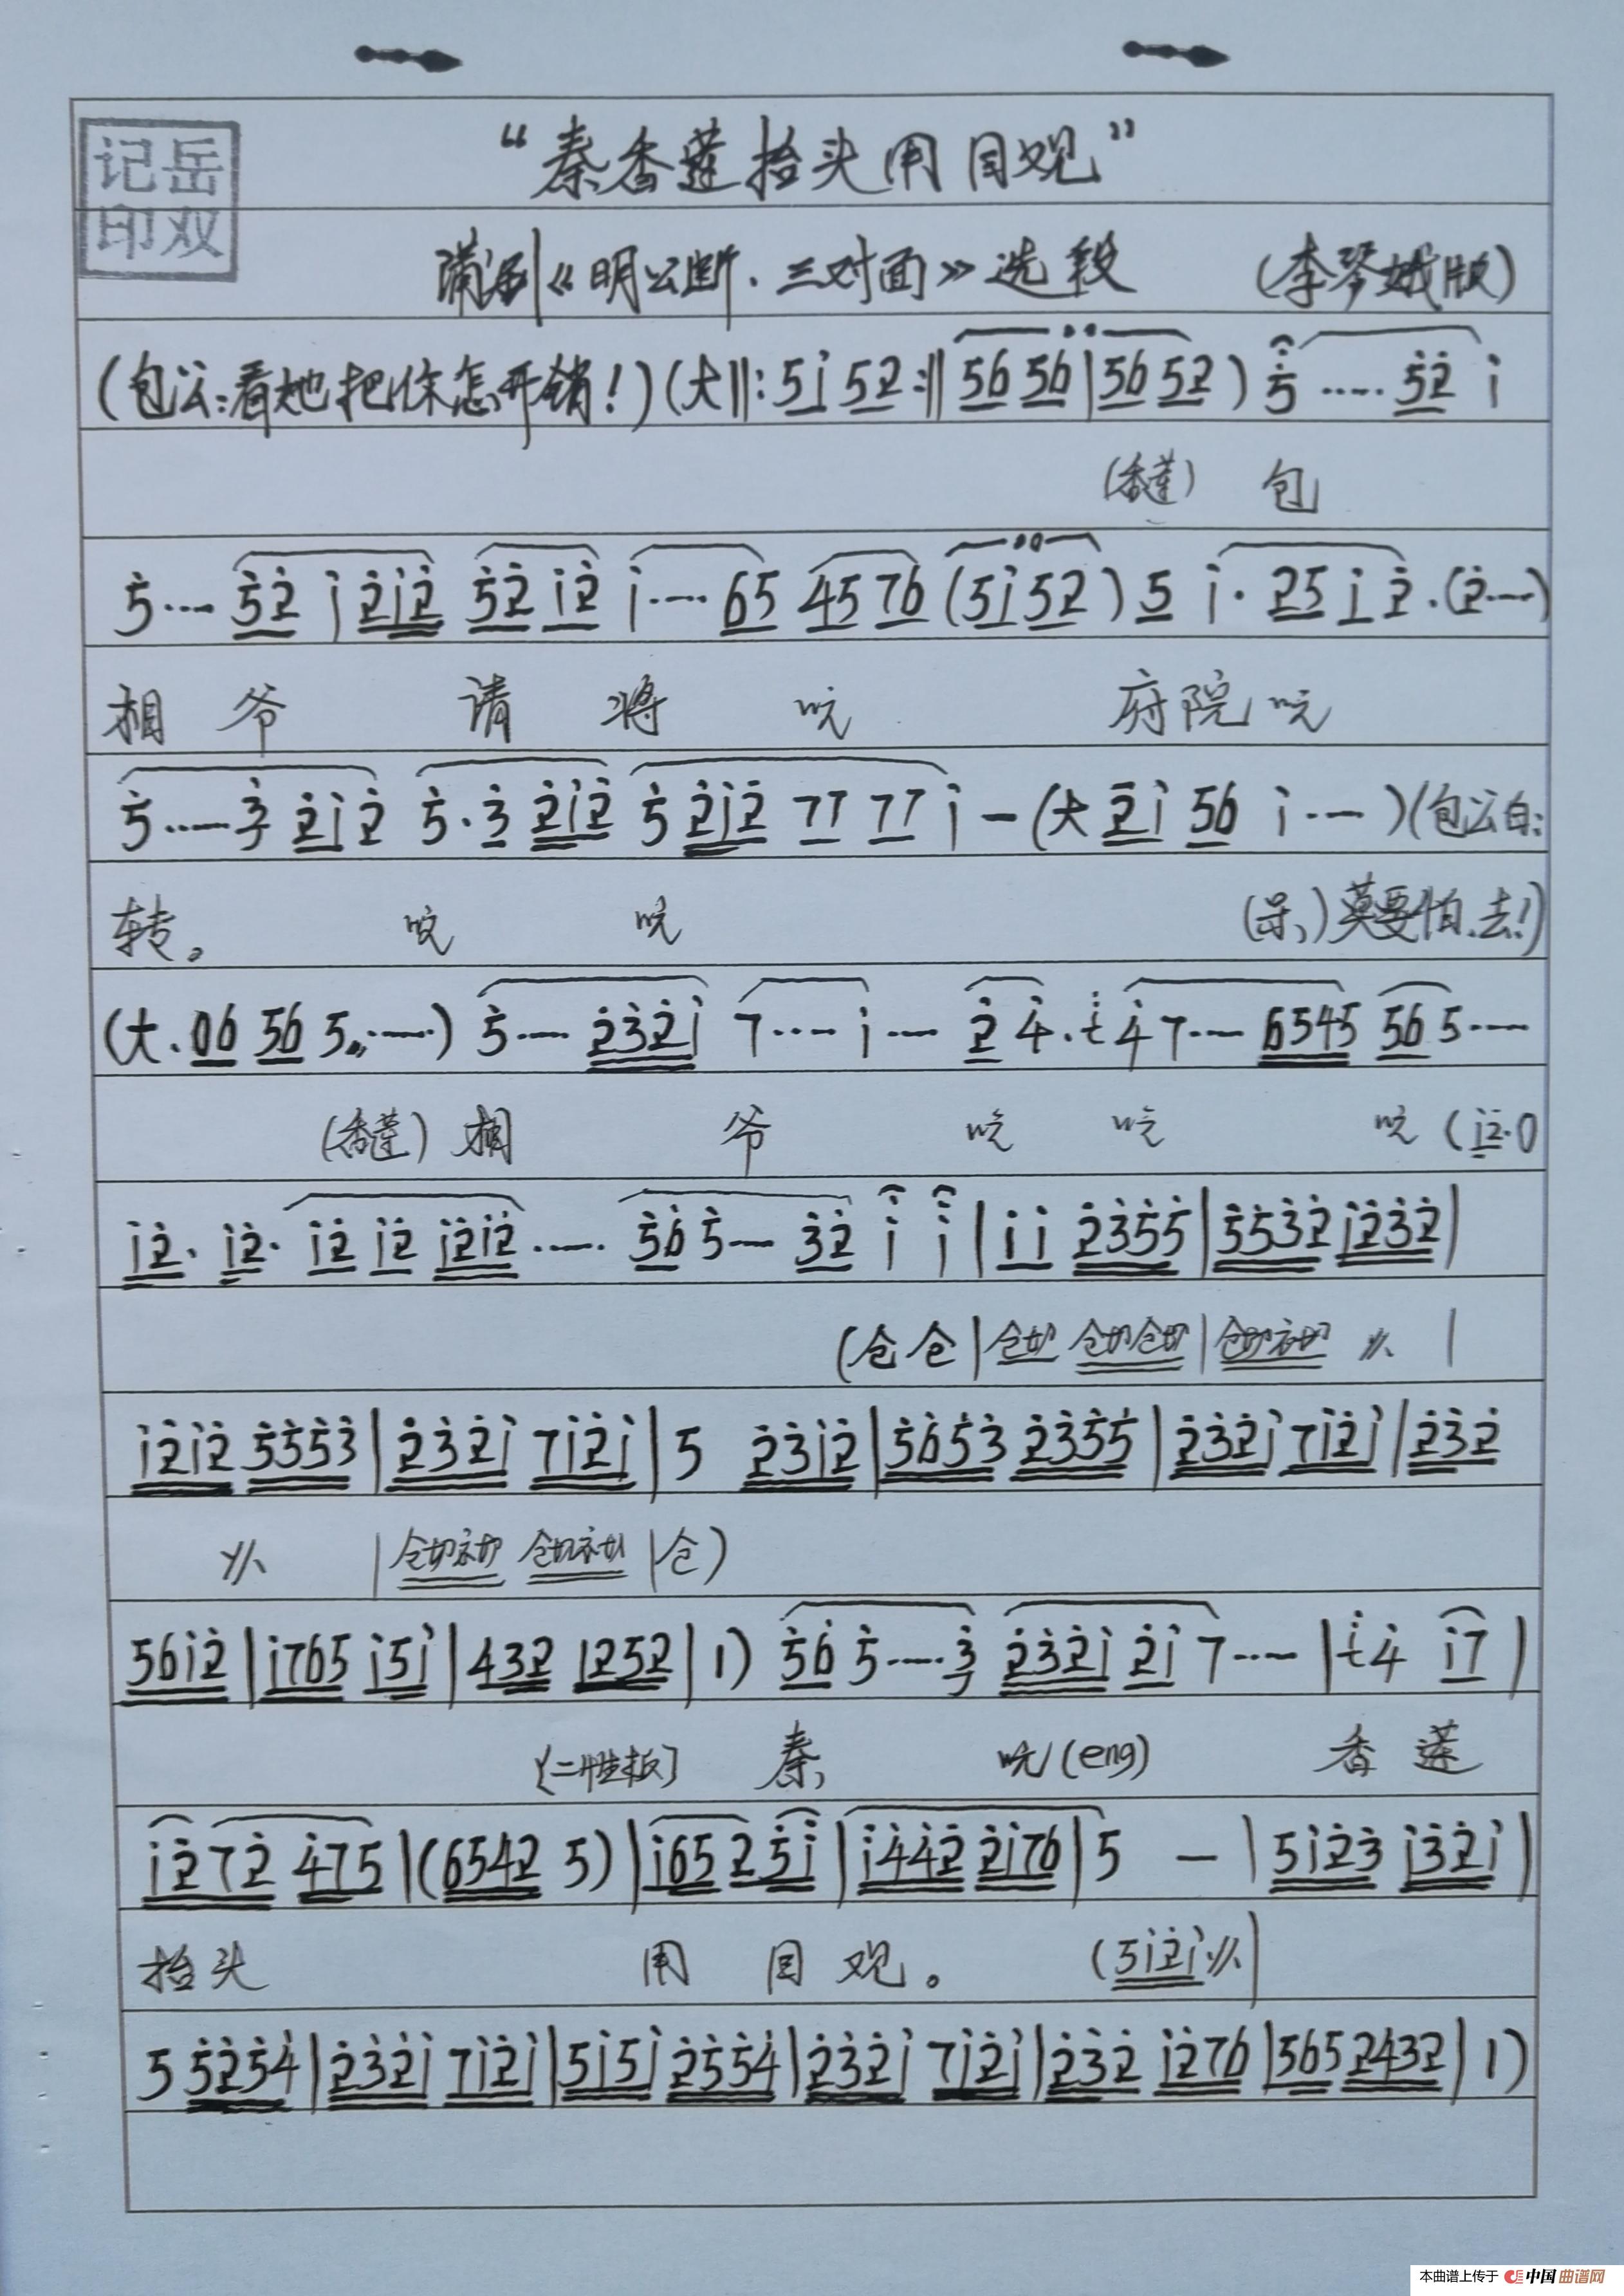 “秦香莲抬头用目观”
记岳
印双
蒲剧《明公断·三对面》选段 (李琴娥版)
(包公:看她把你怎开销!)(大‖:5i 52:‖56 56|56 52) 5 ····· 52 i
(香莲) 包
5··· 52 i 2i2 52 i2 i···· 65 45 76 (5i 52) 5 i· 25 i 2·(2···)
相 爷 请 将 吭 府院吭
5····3 2i2 5·3 2i2 5 2i2 77 77 i —(大 2i 56 i··· )(包公白:
转。 吭 吭 (呆,)莫要怕.去!)
(大.06 56 5····) 5··· 232i 7···· i··· 2 4· 47··· 6545 56 5····
(香莲) 相 爷 吭 吭 吭 (i2·0
i2· i2· i2 i2 i2i2 ···· 56 5··· 32 i i |ii 2355|5532 i232|
(仓仓|仓切 仓切仓切|仓切衣切 |
i2i2 5553|232i 7i2i|5 23i2|5653 2355|232i 7i2i|232
|仓切衣切 仓切衣切|仓)
56i2|i765 i5i|432 1252|1) 56 5····3 232i 2i 7···· | 4 i7 |
(二性板] 秦, 吭(eng) 香莲
i272 475|(6542 5)|i652 5i|i442 2i76|5 — |5i23 i32i|
抬头 用 目 观。 (5i2i |
5 5254|232i 7i2i|5i5i 2554|232i 7i2i|232 i276|565 2432|1)
本曲谱上传于 中国曲谱网